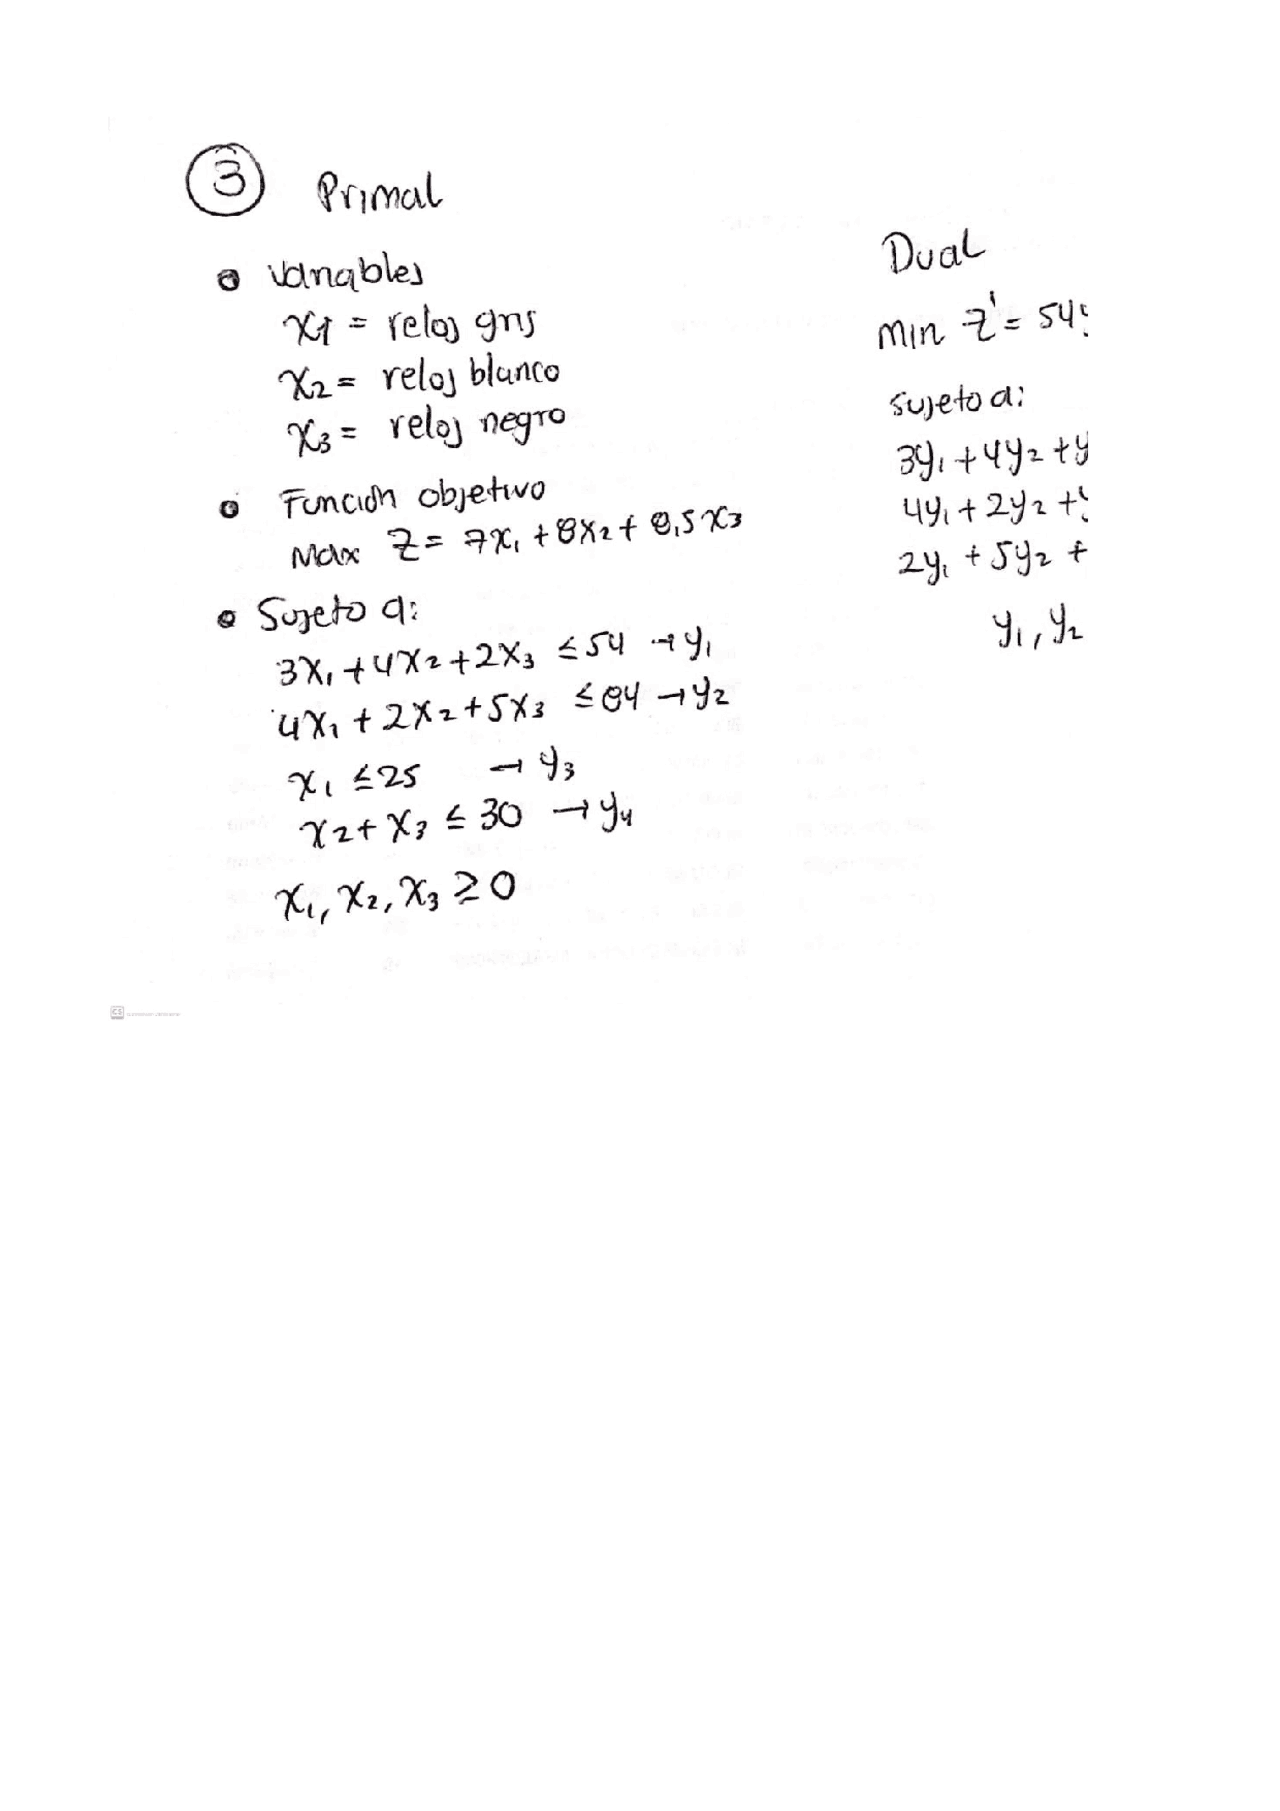 3 Primal
Variables
x1 = reloj gris
x2 = reloj blanco
x3 = reloj negro
Función objetivo
Max Z = 7x1 + 8x2 + 8,5x3
Sujeto a:
3x1 + 4x2 + 2x3 ≤ 54 → y1
4x1 + 2x2 + 5x3 ≤ 84 → y2
x1 ≤ 25 → y3
x2 + x3 ≤ 30 → y4
x1, x2, x3 ≥ 0
Dual
Min Z' = 54y
Sujeto a:
3y1 + 4y2 + y
4y1 + 2y2 + y
2y1 + 5y2 +
y1, y2
CS